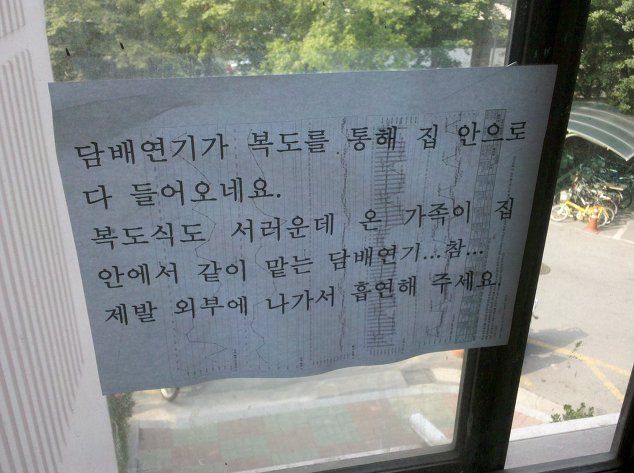 담배연기가 복도를 통해 집 안으로
다 들어오네요.
복도식도 서러운데 온 가족이 집
안에서 같이 맡는 담배연기...참...
제발 외부에 나가서 흡연해 주세요.